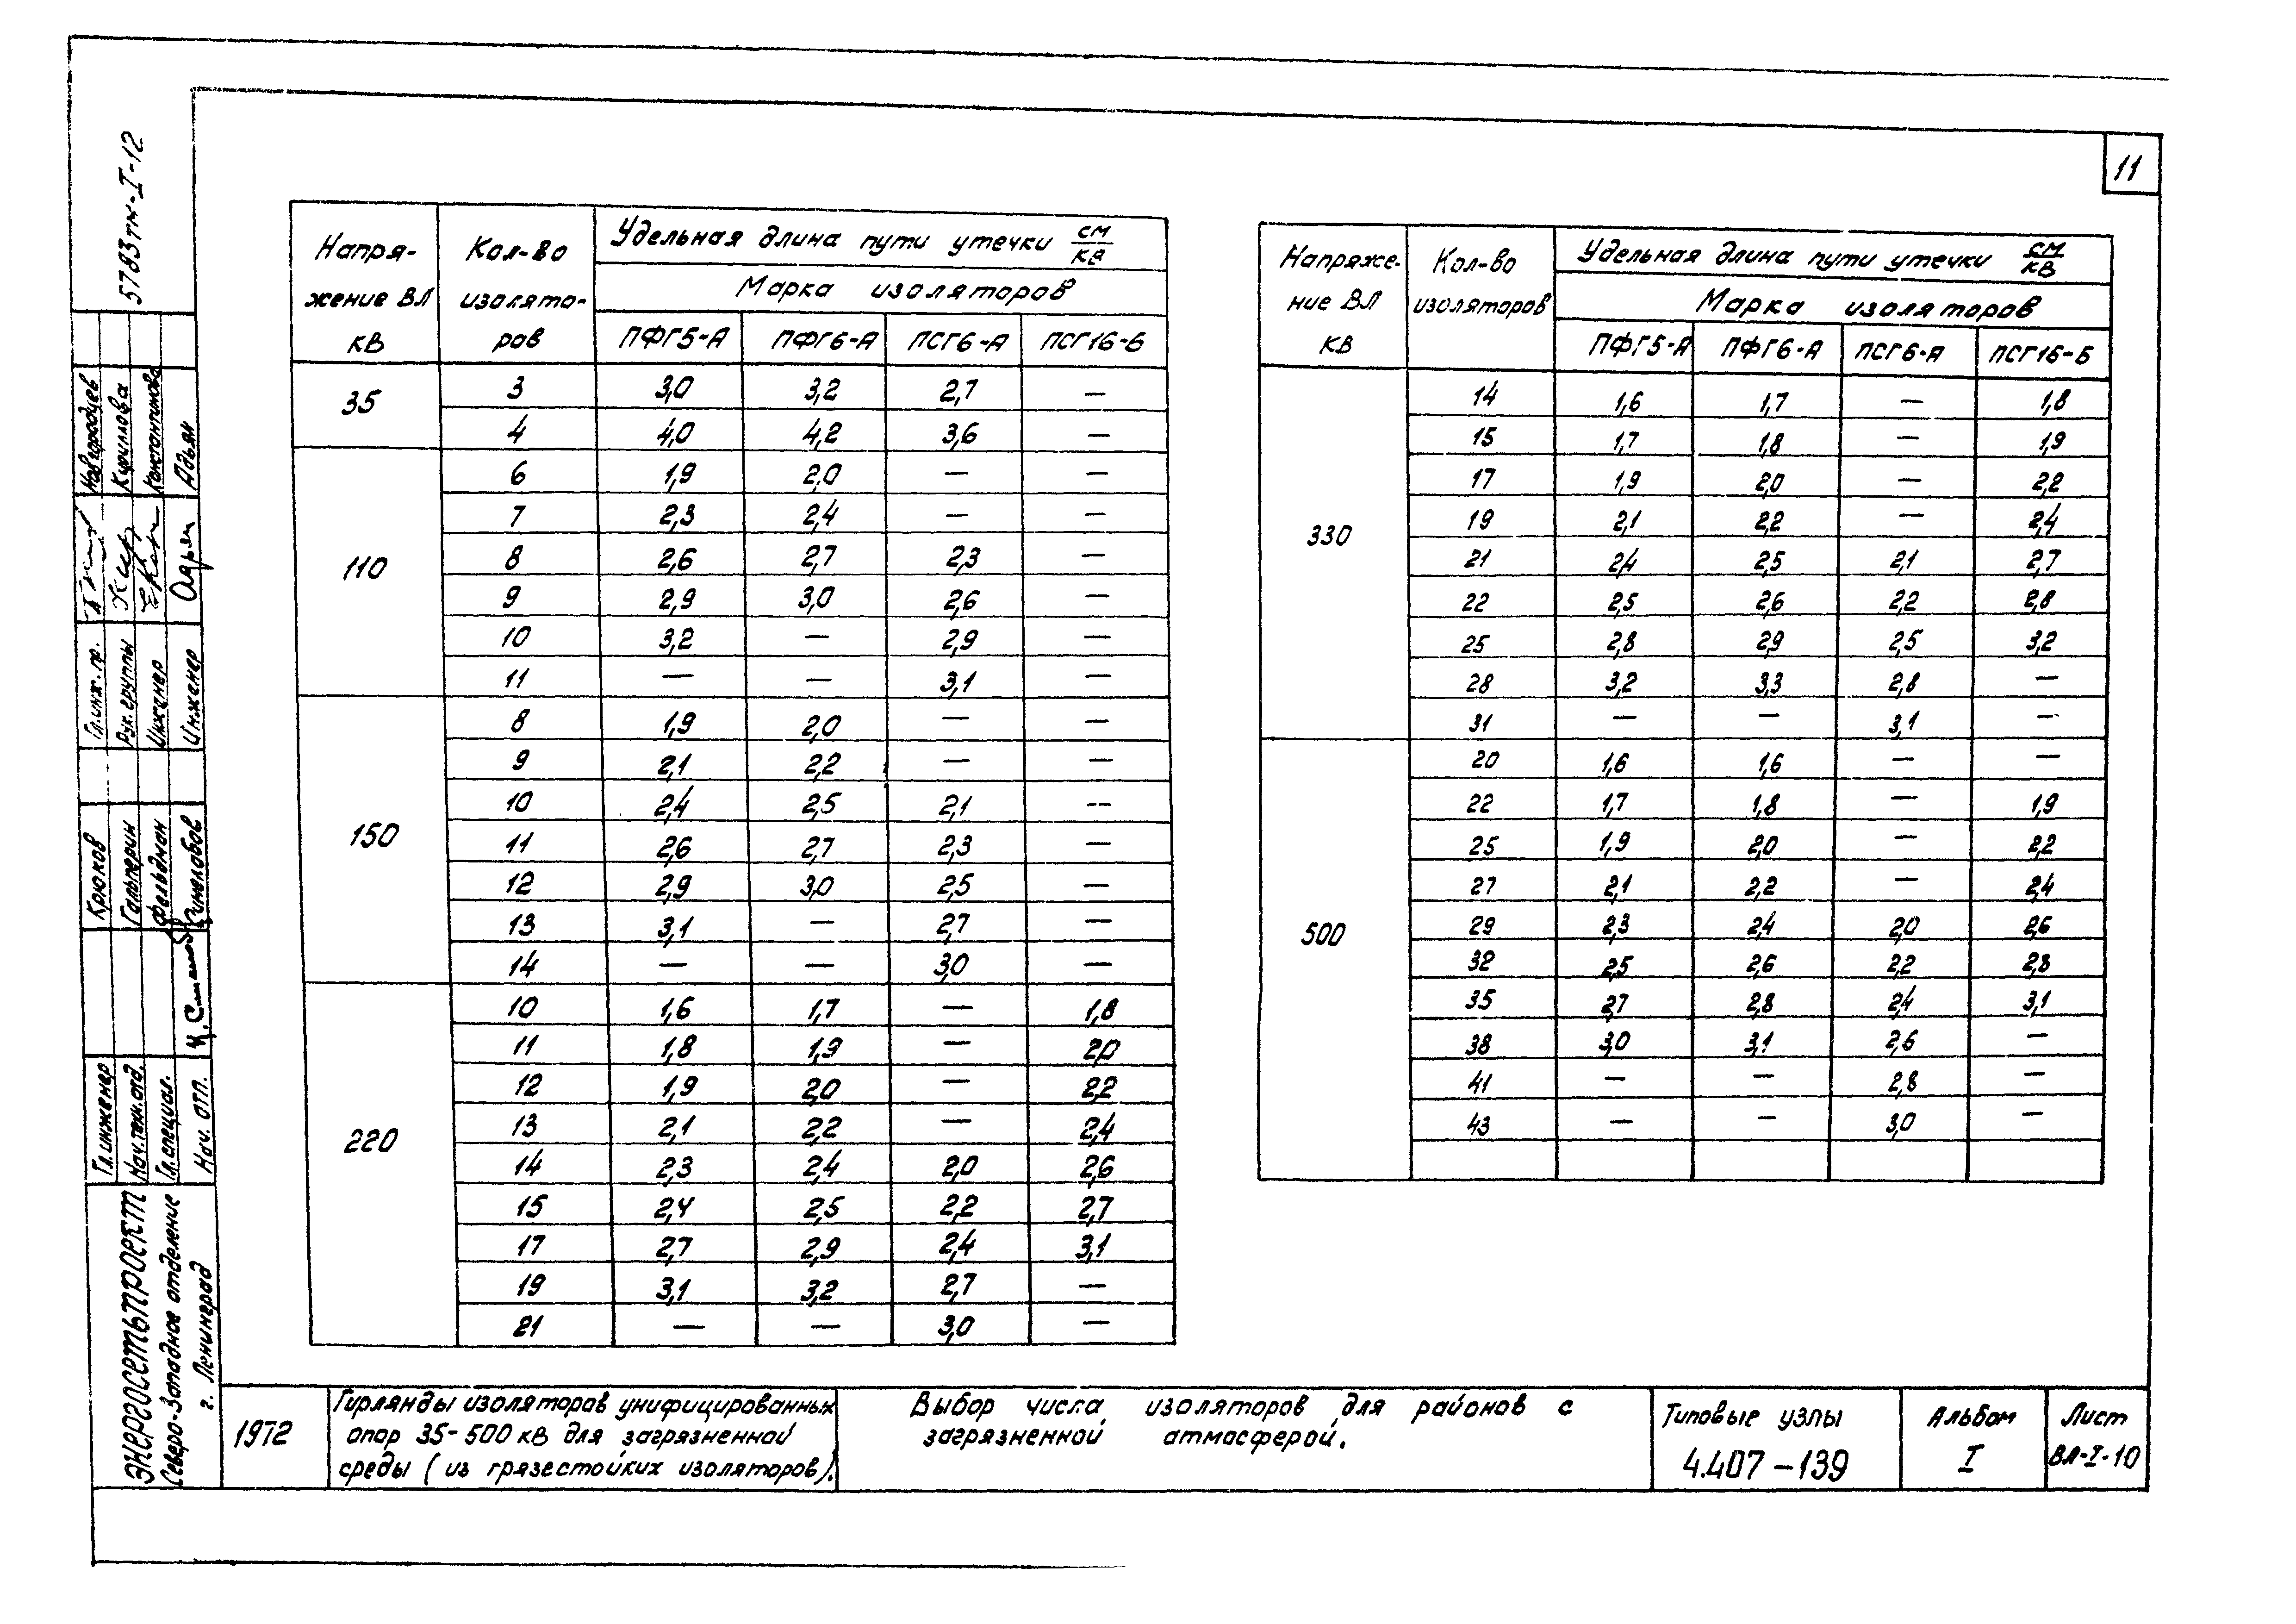 11
5783тм-I-12
Напря-
жение ВЛ
кВ
Кол-во
изолято-
ров
Удельная длина пути утечки см/кВ
Марка изоляторов
ПФГ5-А ПФГ6-А ПСГ6-А ПСГ16-Б
35
3 3,0 3,2 2,7 —
4 4,0 4,2 3,6 —
110
6 1,9 2,0 — —
7 2,3 2,4 — —
8 2,6 2,7 2,3 —
9 2,9 3,0 2,6 —
10 3,2 — 2,9 —
11 — — 3,1 —
150
8 1,9 2,0 — —
9 2,1 2,2 — —
10 2,4 2,5 2,1 —
11 2,6 2,7 2,3 —
12 2,9 3,0 2,5 —
13 3,1 — 2,7 —
14 — — 3,0 —
220
10 1,6 1,7 — 1,8
11 1,8 1,9 — 2,0
12 1,9 2,0 — 2,2
13 2,1 2,2 — 2,4
14 2,3 2,4 2,0 2,6
15 2,4 2,5 2,2 2,7
17 2,7 2,9 2,4 3,1
19 3,1 3,2 2,7 —
21 — — 3,0 —
Напряже-
ние ВЛ
кВ
Кол-во
изоляторов
Удельная длина пути утечки см/кВ
Марка изоляторов
ПФГ5-А ПФГ6-А ПСГ6-А ПСГ16-Б
330
14 1,6 1,7 — 1,8
15 1,7 1,8 — 1,9
17 1,9 2,0 — 2,2
19 2,1 2,2 — 2,4
21 2,4 2,5 2,1 2,7
22 2,5 2,6 2,2 2,8
25 2,8 2,9 2,5 3,2
28 3,2 3,3 2,8 —
31 — — 3,1 —
500
20 1,6 1,6 — —
22 1,7 1,8 — 1,9
25 1,9 2,0 — 2,2
27 2,1 2,2 — 2,4
29 2,3 2,4 2,0 2,6
32 2,5 2,6 2,2 2,8
35 2,7 2,8 2,4 3,1
38 3,0 3,1 2,6 —
41 — — 2,8 —
43 — — 3,0 —
Гл.инж.пр. Новгородцев
Рук.группы Кириллова
Инженер Константинова
Инженер Адьян
Гл.инженер Крюков
Нач.техн.отд. Гальперин
Гл.специал. Фельдман
Нач. ОТП. Синелобов
Энергосетьпроект
Северо-Западное отделение
г. Ленинград
1972
Гирлянды изоляторов унифицированных
опор 35-500 кВ для загрязненной
среды (из грязестойких изоляторов).
Выбор числа изоляторов для районов с
загрязненной атмосферой.
Типовые узлы
4.407-139
Альбом
I
Лист
ВЛ-I-10